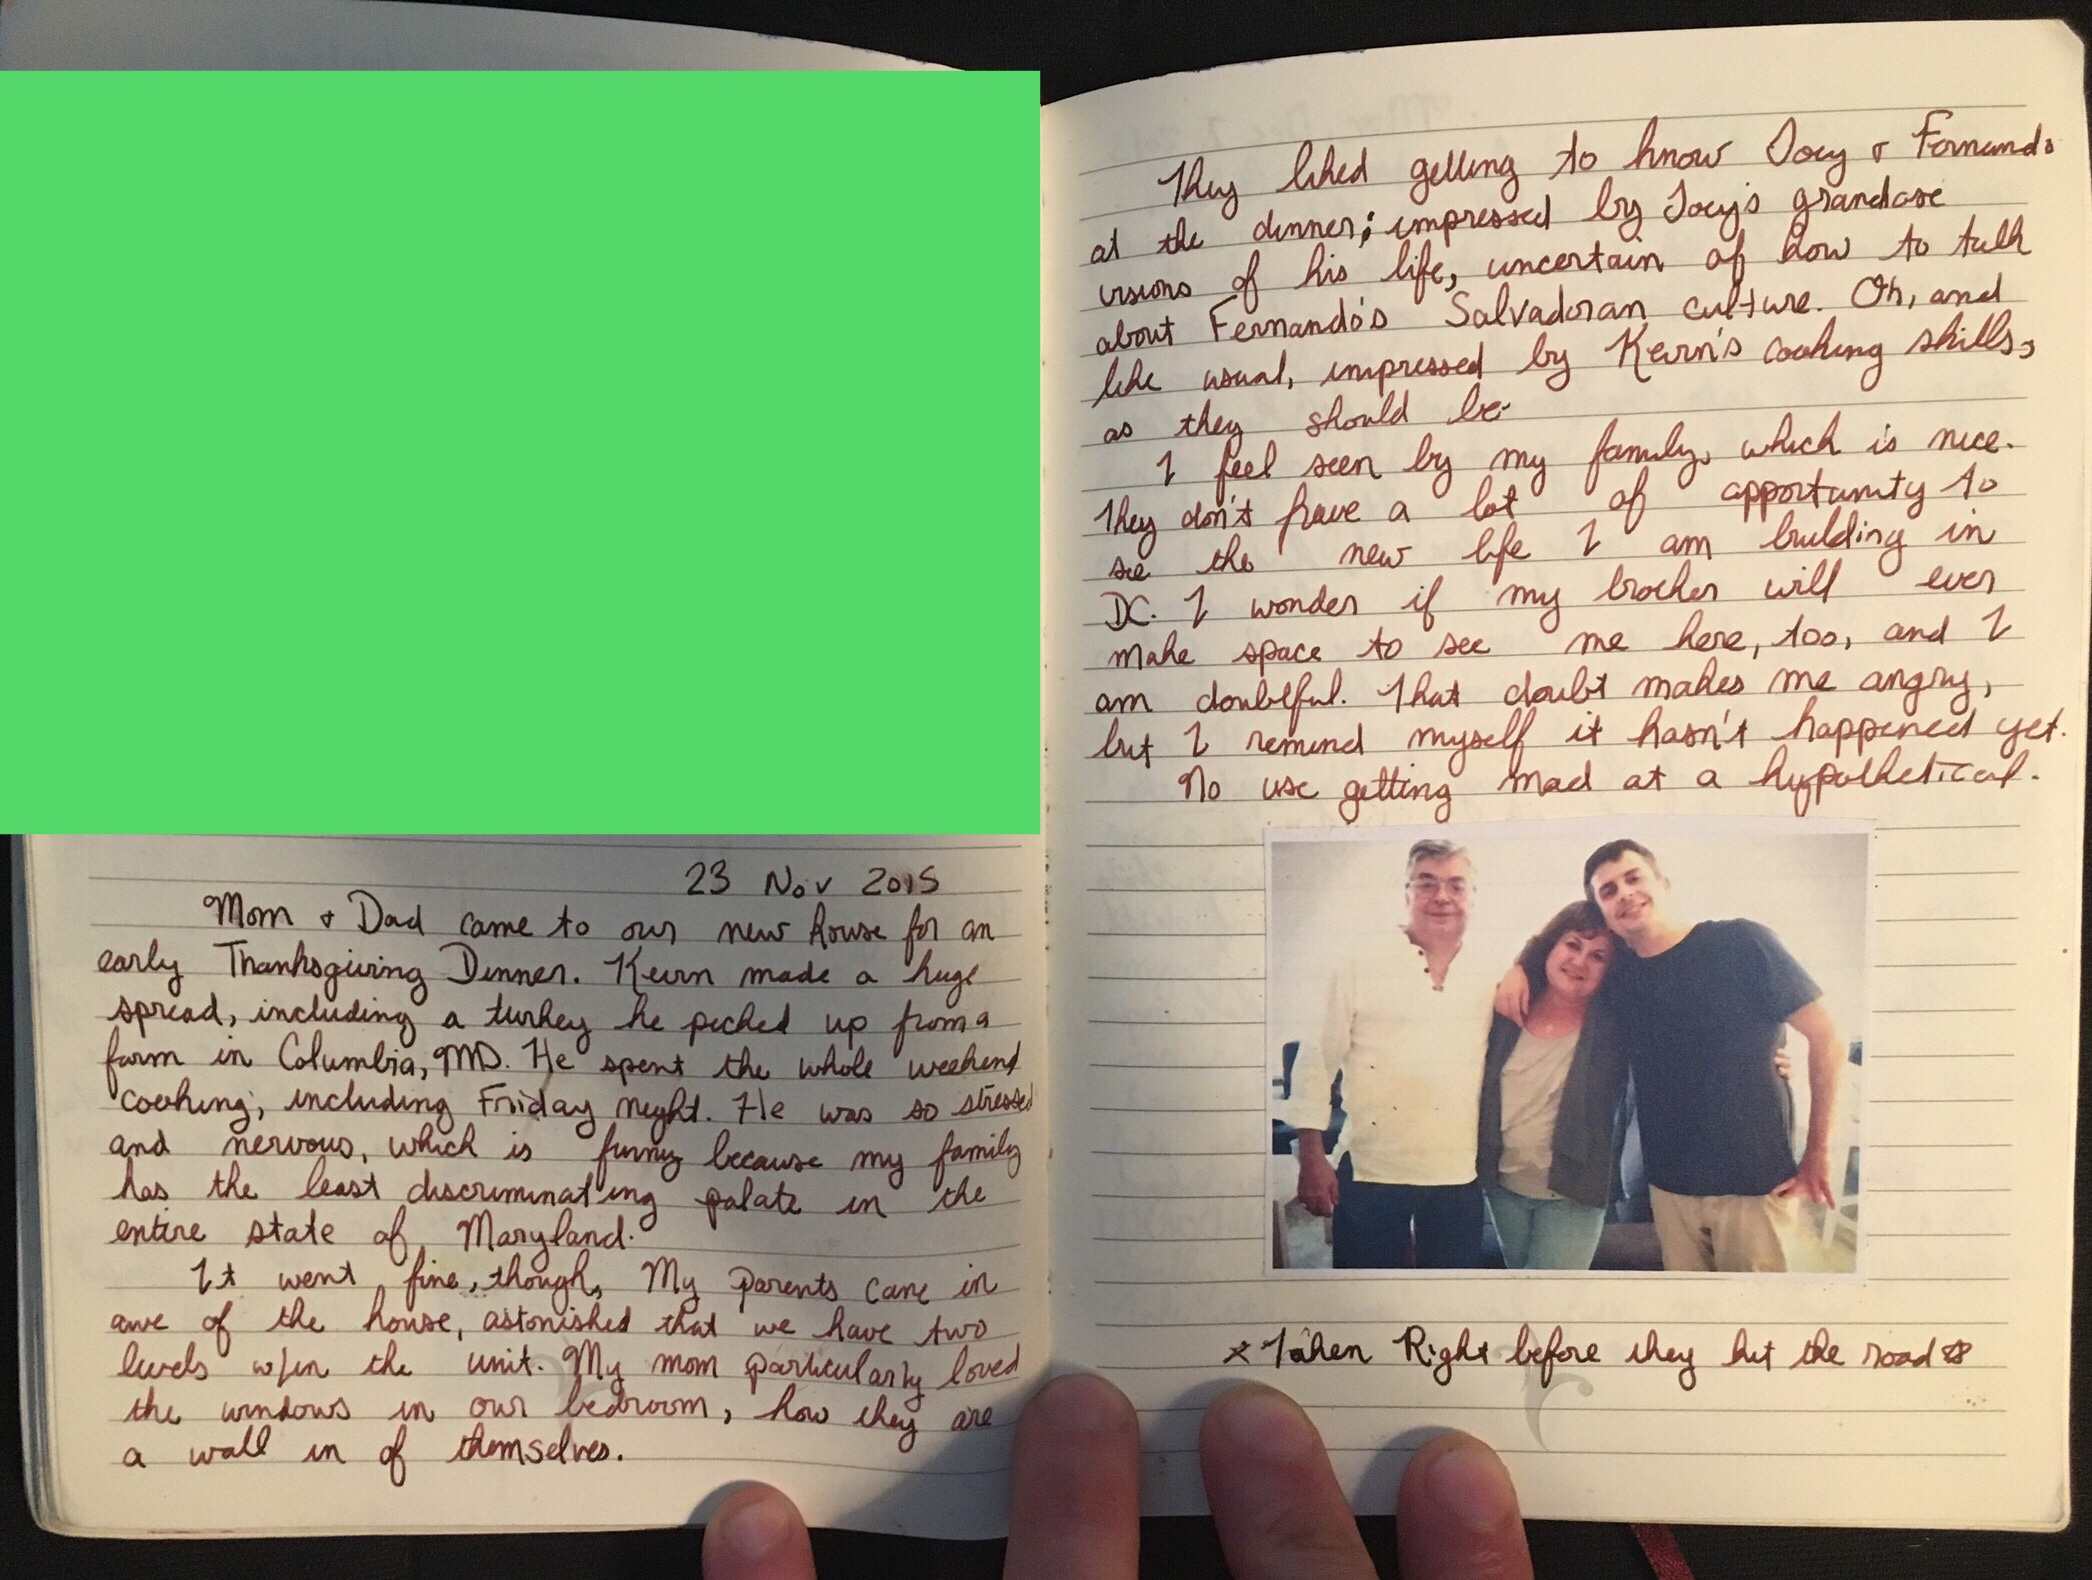 23 Nov 2015
Mom & Dad came to our new house for an
early Thanksgiving Dinner. Kevin made a huge
spread, including a turkey he picked up from a
farm in Columbia, MD. He spent the whole weekend
cooking, including Friday night. He was so stressed
and nervous, which is funny because my family
has the least discriminating palate in the
entire state of Maryland.
It went fine, though. My parents came in
awe of the house, astonished that we have two
levels w/in the unit. My mom particularly loved
the windows in our bedroom, how they are
a wall in of themselves.
They liked getting to know Joey & Fernando
at the dinner; impressed by Joey's grandiose
visions of his life, uncertain of how to talk
about Fernando's Salvadoran culture. Oh, and
like usual, impressed by Kevin's cooking skills,
as they should be.
I feel seen by my family, which is nice.
They don't have a lot of opportunity to
see the new life I am building in
DC. I wonder if my brother will ever
make space to see me here, too, and I
am doubtful. That doubt makes me angry,
but I remind myself it hasn't happened yet.
No use getting mad at a hypothetical.
* Taken Right before they hit the road *